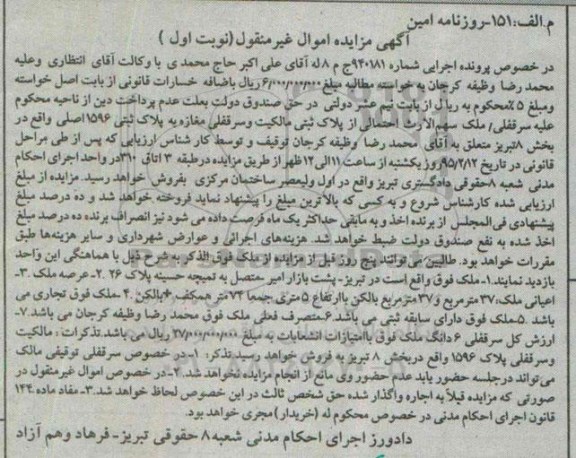 م.الف:۱۵۱-روزنامه امین
آگهی مزایده اموال غیر منقول (نوبت اول )
در خصوص پرونده اجرایی شماره ۹۴۰۱۸۱ ج م ۸ له آقای علی اکبر حاج محمدی با وکالت آقای انتظاری وعلیه
محمد رضا وظیفه کرجان به خواسته مطالبه مبلغ ۶/۰۰۰/۰۰۰/۰۰۰ ریال باضافه خسارات قانونی از بابت اصل خواسته
ومبلغ ۵٪محکوم به ریال از بابت نیم عشر دولتی در حق صندوق دولت بعلت عدم پرداخت دین از ناحیه محکوم
علیه سرقفلی/ ملک سهم الارث احتمالی از پلاک ثبتی مالکیت وسرقفلی مغازه به پلاک ثبتی ۱۵۹۶ اصلی واقع در
بخش ۸تبریز متعلق به آقای محمد رضا وظیفه کرجان توقیف و توسط کارشناس ارزیابی که پس از طی مراحل
قانونی در تاریخ ۹۵/۲/۱۲ روز یکشنبه از ساعت ۱۱الی۱۲ظهر از طریق مزایده درطبقه ۳ اتاق ۳۱۰در واحد اجرای احکام
مدنی شعبه ۸حقوقی دادگستری تبریز واقع در اول ولیعصر ساختمان مرکزی بفروش خواهد رسید. مزایده از مبلغ
ارزیابی شده کارشناس شروع و به کسی که بالاترین مبلغ را پیشنهاد نماید فروخته خواهد شد و ده درصد مبلغ
پیشنهادی فی المجلس از برنده اخذ و به مابقی حداکثر یک ماه فرصت داده می شود نیز انصراف برنده ده درصد مبلغ
اخذ شده به نفع صندوق دولت ضبط خواهد شد. هزینه‌های اجرائی و عوارض شهرداری و سایر هزینه‌ها طبق
مقررات خواهد بود. طالبین می‌توانند پنج روز قبل از مزایده از ملک فوق الذکر به شرح ذیل با هماهنگی این واحد
بازدید نمایند.۱-ملک فوق واقع است در تبریز- پشت بازار امیر متصل به تمیچه حسینه پلاک ۲۶ .۲-عرصه ملک .۳-
اعیانی ملک:۳۷ مترمربع و۳۷مترمربع بالکن باارتفاع ۵متری جمعا ۷۴ متر همکف +بالکن .۴ ملک فوق تجاری می
باشد .۵-ملک فوق دارای سابقه ثبتی می باشد.۶-متصرف فعلی ملک فوق محمد رضا وظیفه کرجان می باشد.۷-
ارزش کل سرقفلی ۶ دانگ ملک فوق باامتیازات انشعابات به مبلغ ۳۷/۰۰۰/۰۰۰/۰۰۰ ریال می باشد.تذکرات : مالکیت
وسرقفلی پلاک ۱۵۹۶ واقع دربخش ۸ تبریز به فروش خواهد رسید.تذکر: ۱-در خصوص سرقفلی توقیفی مالک
می‌تواند درجلسه حضور یابد عدم حضور وی مانع از انجام مزایده نخواهد شد.۲-در خصوص اموال غیرمنقول در
صورتی که مزایده قبلا به اجاره واگذار شده حق شخص ثالث در این خصوص لحاظ خواهد شد.۳-مفاد ماده ۱۴۴
قانون اجرای احکام مدنی در خصوص محکوم له (خریدار) مجری خواهد بود.
دادورز اجرای احکام مدنی شعبه۸ حقوقی تبریز- فرهاد وهم آزاد